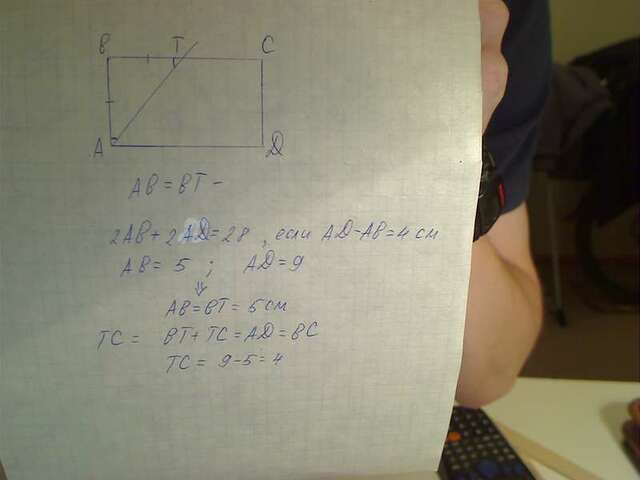 B T C
A D
AB = BT -
2AB + 2AD = 28 , если AD-AB=4 см
AB = 5 ; AD = 9
⇓
AB = BT = 5 см
TC = BT + TC = AD = BC
TC = 9-5 = 4